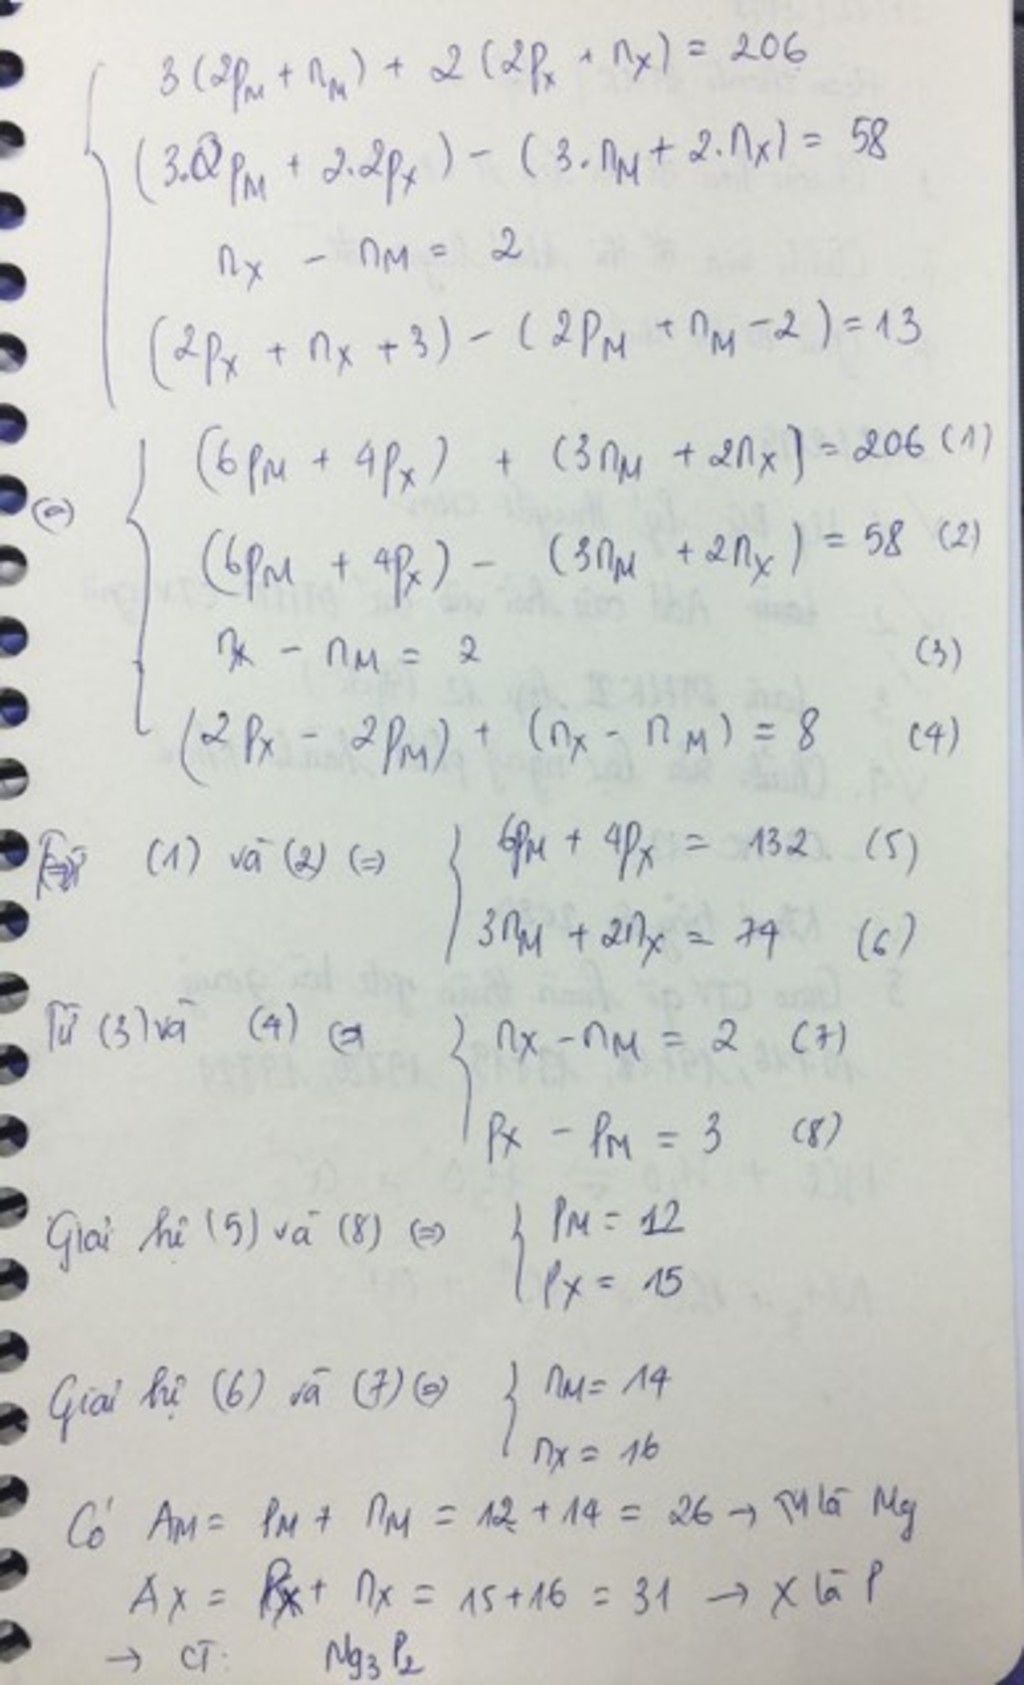 3(2pM + nM) + 2(2pX + nX) = 206
(3.2pM + 2.2pX) - (3.nM + 2.nX) = 58
nX - nM = 2
(2pX + nX + 3) - (2pM + nM - 2) = 13
(6pM + 4pX) + (3nM + 2nX) = 206 (1)
(=) (6pM + 4pX) - (3nM + 2nX) = 58 (2)
nX - nM = 2 (3)
(2pX - 2pM) + (nX - nM) = 8 (4)
(1) và (2) (=) 6pM + 4pX = 132 (5)
3nM + 2nX = 74 (6)
Từ (3) và (4) (=) nX - nM = 2 (7)
pX - pM = 3 (8)
Giải hệ (5) và (8) (=) pM = 12
pX = 15
Giải hệ (6) và (7) (=) nM = 14
nX = 16
Có AM = pM + nM = 12 + 14 = 26 → M là Mg
AX = pX + nX = 15 + 16 = 31 → X là P
→ CT: Mg3P2